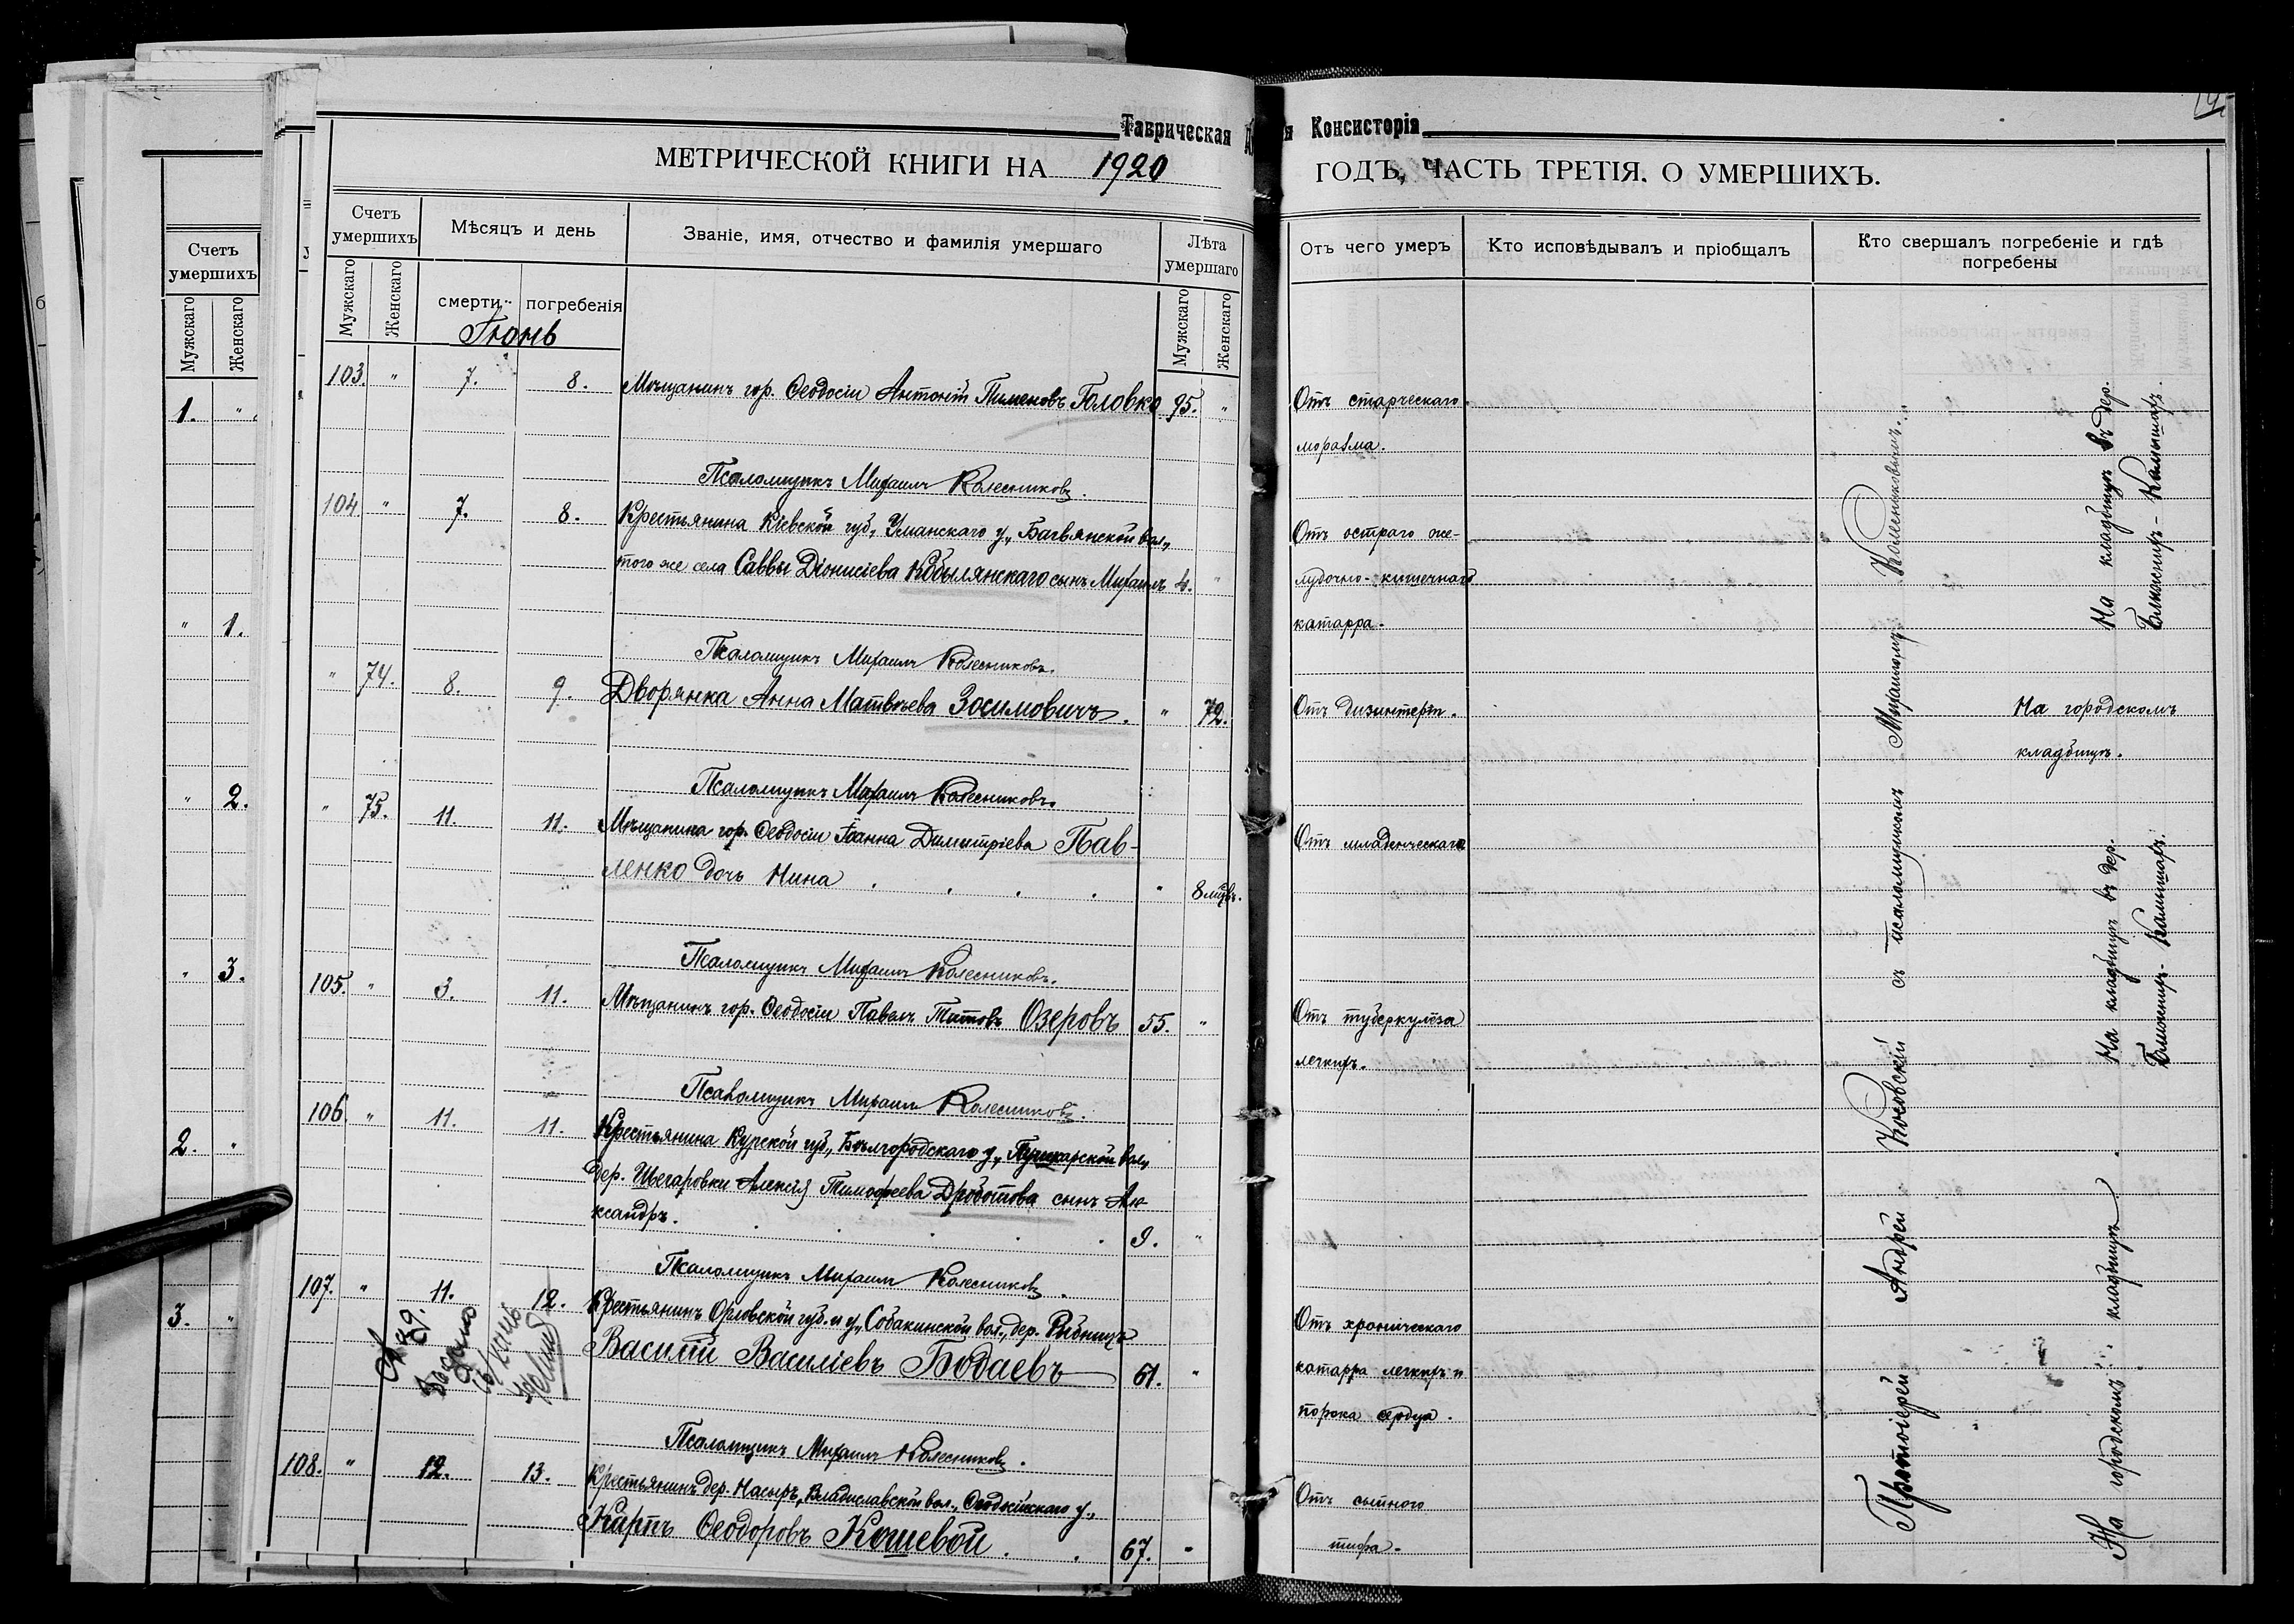 Таврическая
Консисторія
МЕТРИЧЕСКОЙ КНИГИ НА 1920
ГОДЪ, ЧАСТЬ ТРЕТІЯ, О УМЕРШИХЪ.
Счетъ
умершихъ
Мужскаго
Женскаго
1. "
" 1.
" 2.
" 3.
2. "
3. "
Счетъ
умершихъ
Мѣсяцъ и день
Званіе, имя, отчество и фамилія умершаго
Лѣта
умершаго
Мужскаго
Женскаго
смерти
погребенія
Мужскаго
Женскаго
Іюнь
103. " 7. 8. Мѣщанинъ гор. Ѳеодосіи Антоній Пименовъ Головко 95. "
Псаломщикъ Михаилъ Колесниковъ.
104 " 7. 8. Крестьянина Кіевской губ., Уманскаго у., Багвянской вол.,
того же села Саввы Діонисіева Кобылянскаго сынъ Михаилъ 4. "
Псаломщикъ Михаилъ Колесниковъ.
" 74. 8. 9. Дворянка Анна Матвѣева Зосимовичъ. " 72.
Псаломщикъ Михаилъ Колесниковъ.
" 75. 11. 11. Мѣщанина гор. Ѳеодосіи Іоанна Димитріева Пав-
ленко дочь Нина " 8 мѣс.
Псаломщикъ Михаилъ Колесниковъ.
105. " 3. 11. Мѣщанинъ гор. Ѳеодосіи Павелъ Титовъ Озеровъ 55. "
Псаломщикъ Михаилъ Колесниковъ.
106. " 11. 11. Крестьянина Курской губ., Бѣлгородскаго у., Пушкарской вол.,
дер. Щегаровки Алексія Тимофеева Дроботова сынъ Але-
ксандръ. 9. "
Псаломщикъ Михаилъ Колесниковъ.
107. " 11. 12. Крестьянинъ Орловской губ. и у., Собакинской вол., дер. Рыбницъ
Василій Василіевъ Бодаевъ 61. "
Псаломщикъ Михаилъ Колесниковъ.
108. " 12. 13. Крестьянинъ дер. Насыръ, Владиславской вол., Ѳеодосійскаго у.,
Карпъ Ѳеодоровъ Кошевой. 67. "
Отъ чего умеръ
Кто исповѣдывалъ и пріобщалъ
Кто свершалъ погребеніе и гдѣ
погребены
Отъ старческаго
моразма.
Отъ остраго же-
лудочно-кишечнаго
катарра.
Отъ дизинтеріи.
Отъ младенческаго
Отъ туберкулёза
легкихъ.
Отъ хроническаго
катарра легкихъ и
порока сердца.
Отъ сыпного
тифа.
Протоіерей Андрей Косовскій съ псаломщикомъ Михаиломъ Колесниковымъ.
На кладбищѣ въ дер.
Ближнихъ-Камышахъ.
На городскомъ
кладбищѣ.
На кладбищѣ въ дер.
Ближнихъ-Камышахъ.
На городскомъ кладбищѣ.